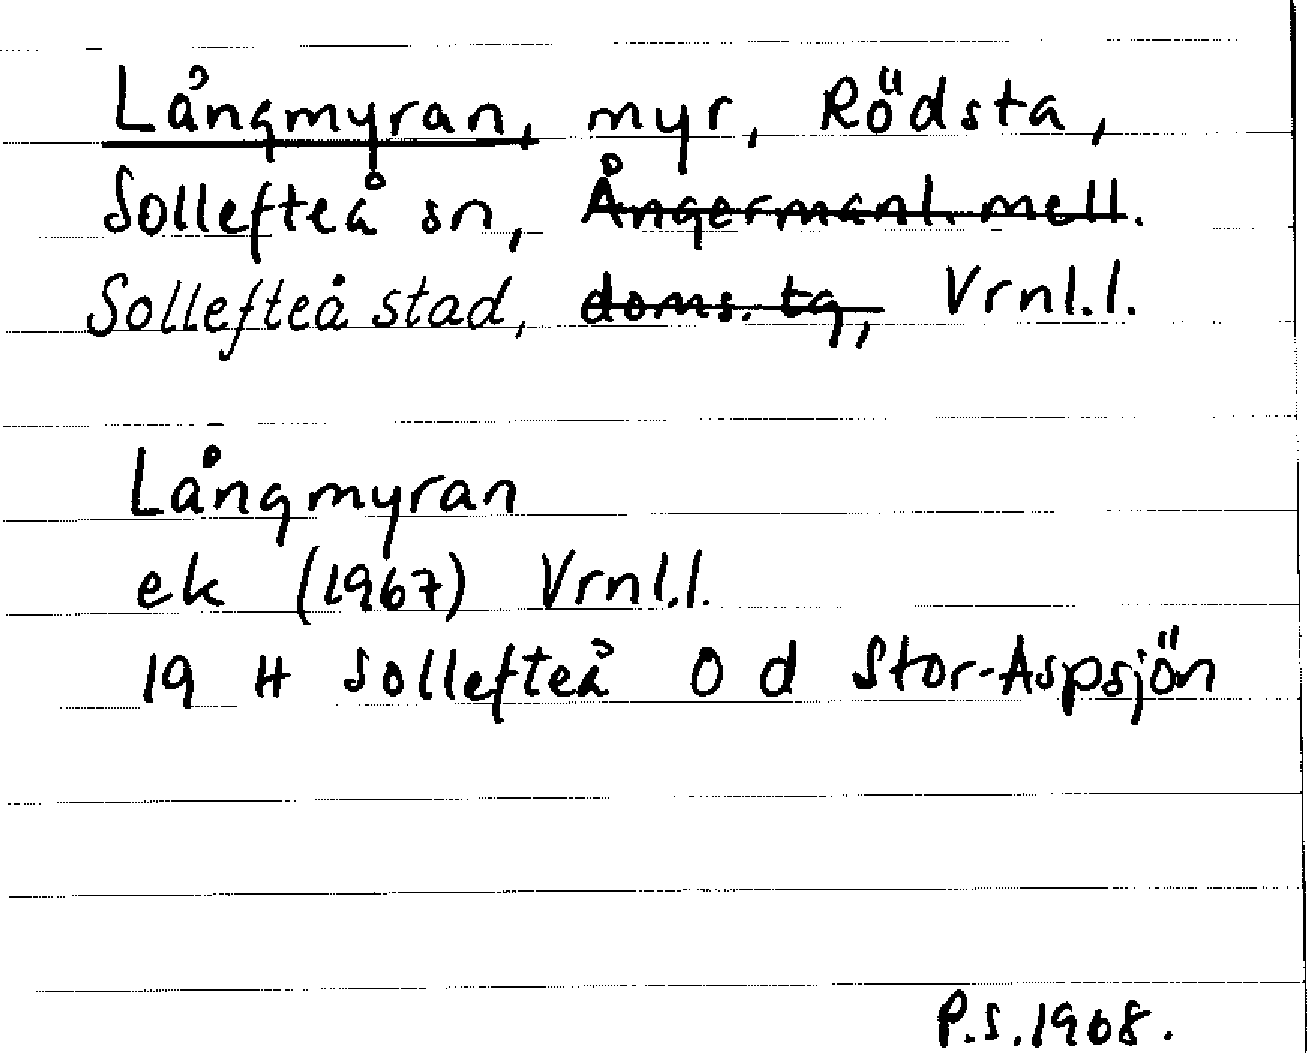 Långmyran, myr, Rödsta,
Sollefteå sn, Ångermanl. mell.
Sollefteå stad, doms. tg, Vrnl.l.
Långmyran
ek (1967) Vrnl.l.
19 H Sollefteå O d Stor-Aspsjön
P.S. 1968.